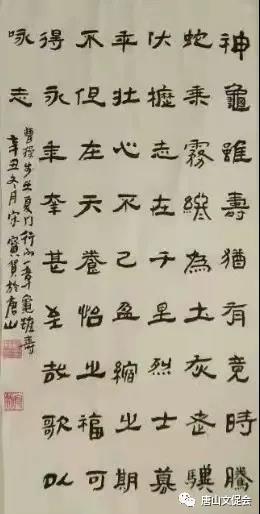 神龜雖壽猶有竟時騰
蛇乘霧終為土灰老驥
伏櫪志在千里烈士暮
年壯心不已盈縮之期
不但在天養怡之福可
得永年幸甚至哉歌以
詠志
曹操步出夏门行一章龜雖壽
辛丑冬月宋寅賀於唐山
唐山文促会